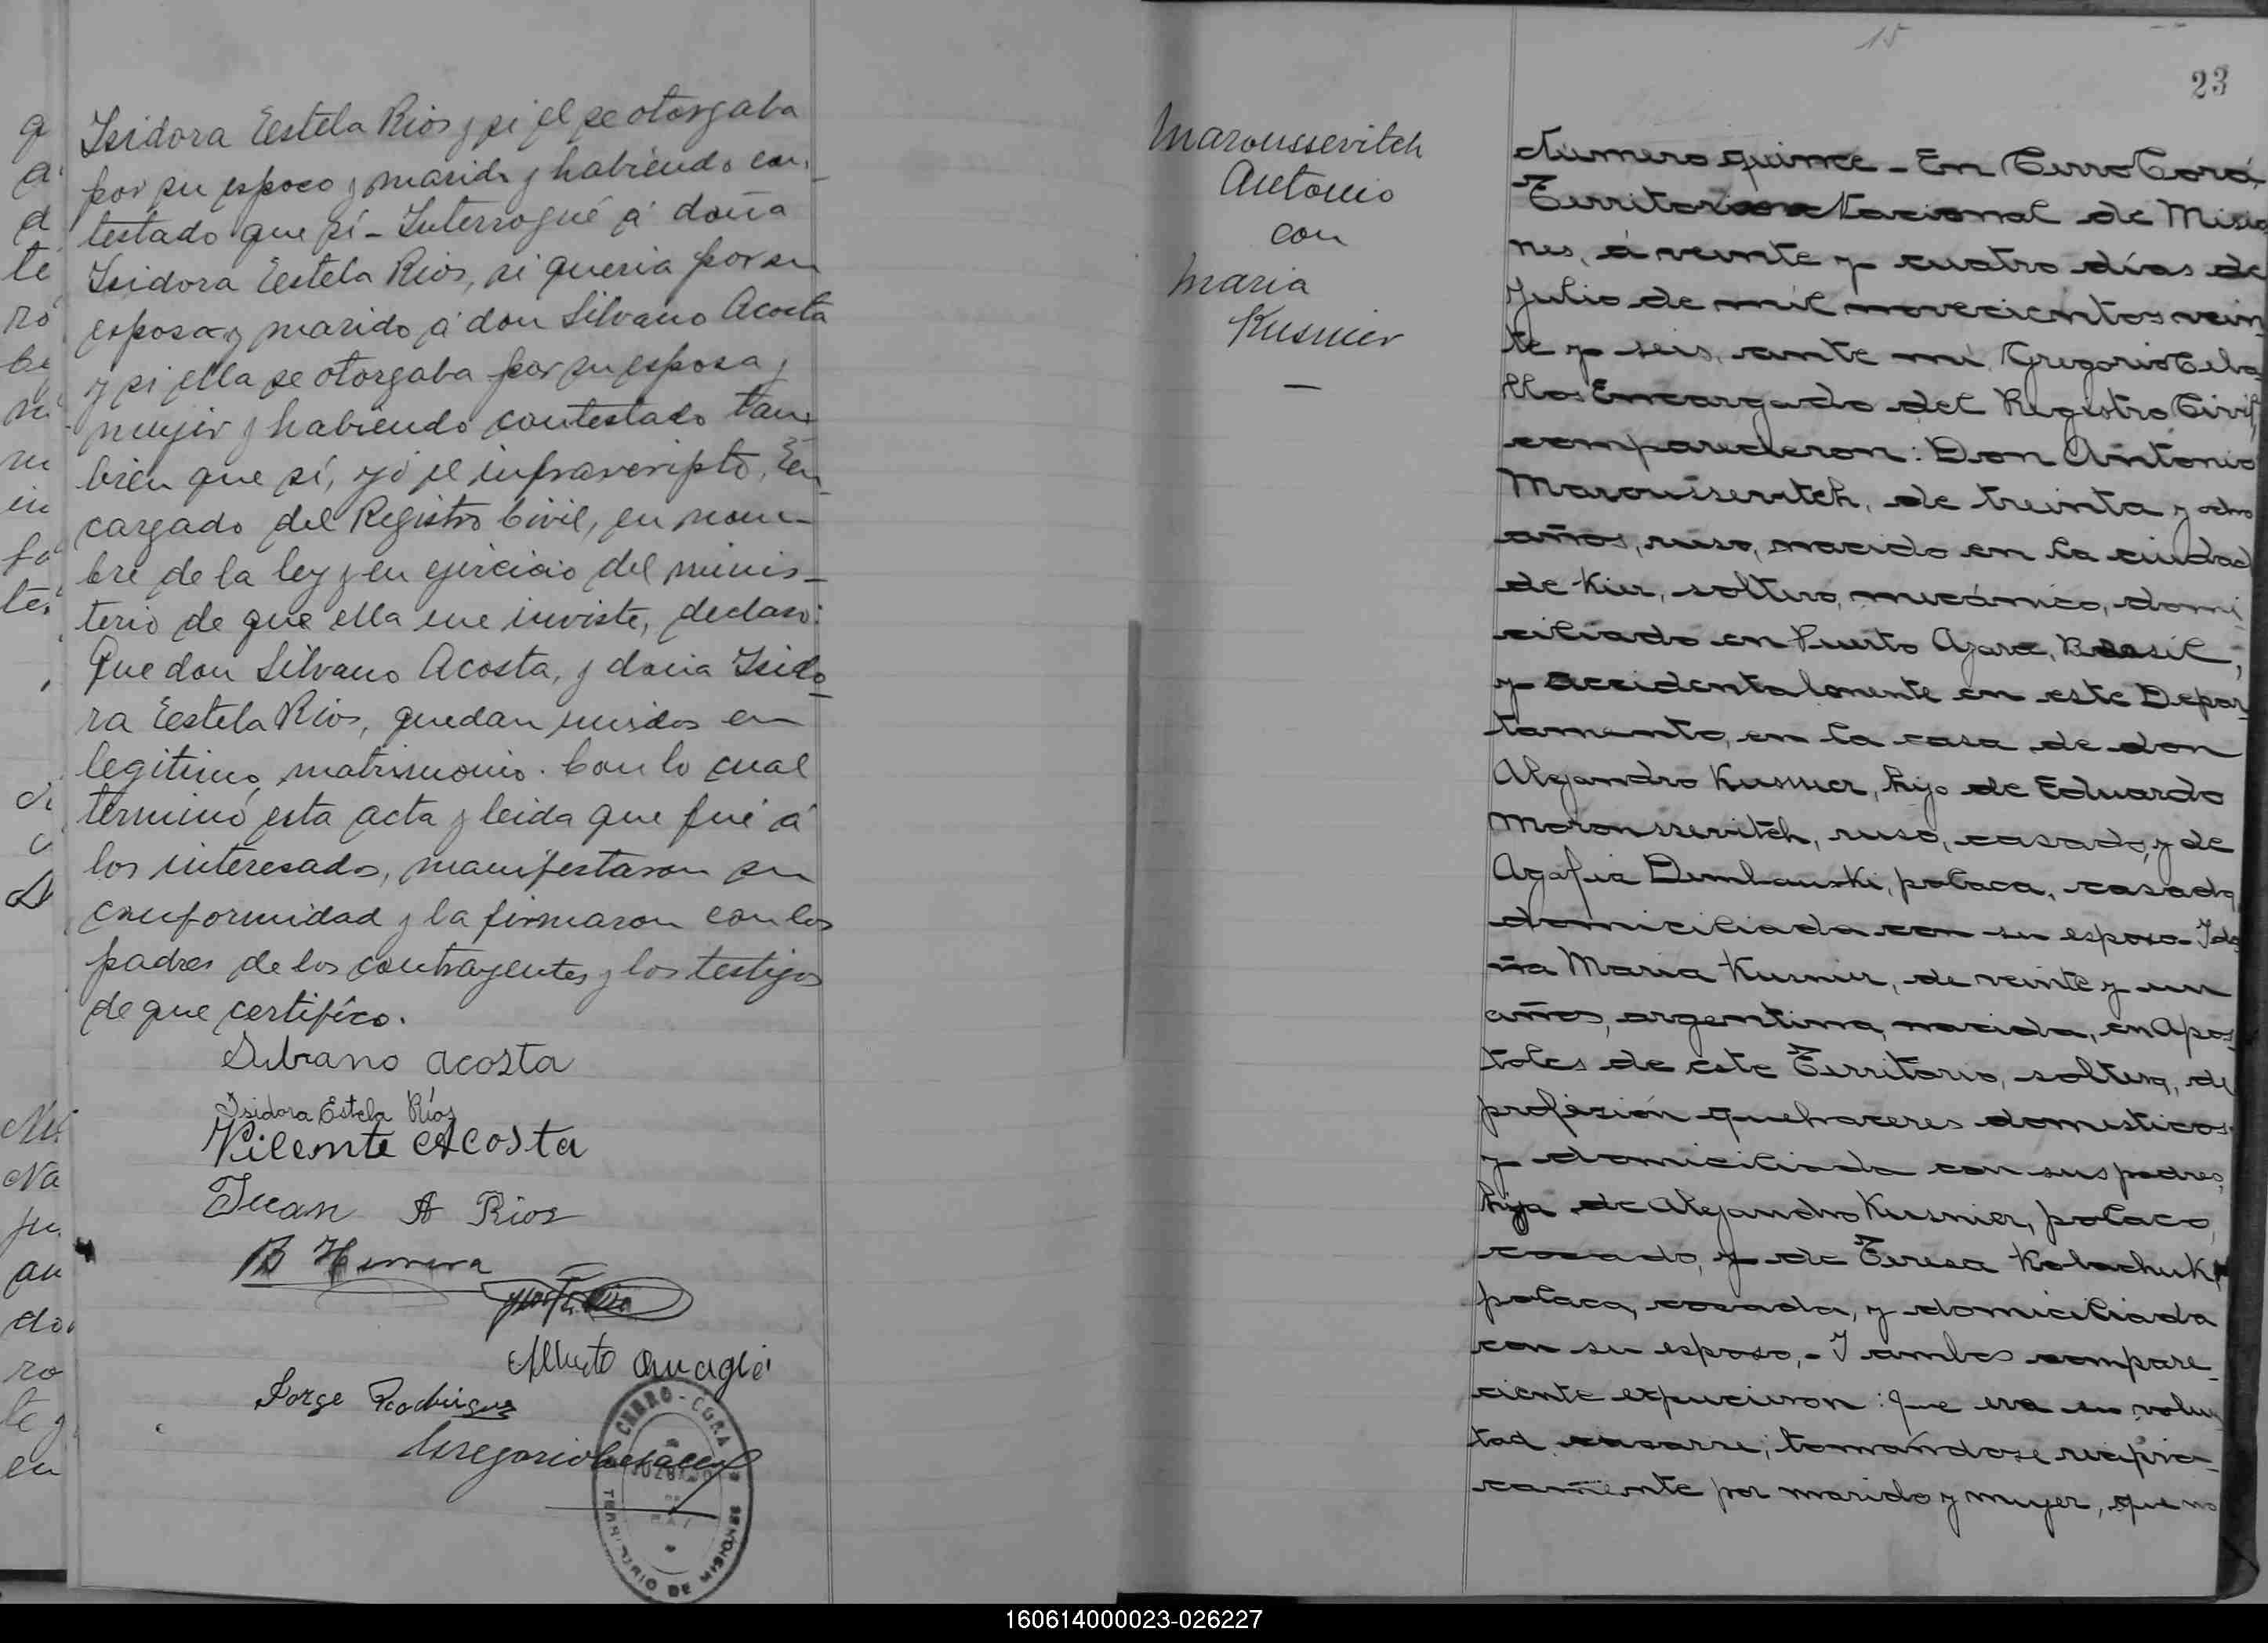 Isidora Estela Rios y si el se otorgaba
por su esposo y marido y habiendo con-
testado que sí - Interrogué á doña
Isidora Estela Rios, si queria por su
esposo y marido á don Silvano Acosta
y si ella se otorgaba por su esposa y
mujer y habiendo contestado tam
bien que sí, yó el infrascripto, En-
cargado del Registro Civil, en nom-
bre de la ley y en ejercicio del minis-
terio de que ella me inviste, declaro:
Que don Silvano Acosta, y doña Isido-
ra Estela Rios, quedan unidos en
legitimo matrimonio. Con lo cual
terminó esta acta y leida que fué á
los interesados, manifestaron su
conformidad y la firmaron con los
padres de los contrayentes y los testigos
de que certifíco.
Silbano acosta
Isidora Estela Ríos
Vicemte Acosta
Juan A Rios
B Herrera
Alberto
Jorge Rodriguez
Gregorio Ceballos
CERRO-CORA
TERRITORIO DE MISIONES
15
23
Maroussevitch
Antonio
con
Maria
Kusnier
Número quince - En Cerro Corá,
Territorio Nacional de Misio
nes, á veinte y cuatro días de
Julio de mil novecientos vein-
te y seis, ante mí Gregorio Ceba
llos Encargado del Registro Civil,
comparecieron: Don Antonio
Maroussevitch, de treinta y ocho
años, ruso, nacido en la ciudad
de Kiev, soltero, mecánico, domi
ciliado en Puerto Azara, Brasil,
y accidentalmente en este Depar-
tamento, en la casa de don
Alejandro Kusnier, hijo de Eduardo
Moroussevitch, ruso, casado, y de
Agafia polaca, casada,
domiciliada con su esposo - I do
ña Maria Kusnier, de veinte y un
años, argentina, nacida, en Apos-
toles de este Territorio, soltera, de
profesión quehaceres domesticos
y domiciliada con sus padres,
hija de Alejandro Kusnier, polaco,
casado, y de Teresa Kolachuk,
polaca, casada, y domiciliada
con su esposo, - I ambos compare-
ciente expucieron: Que era su volun
tad casarse, tomandose recipro-
camente por marido y mujer, que no
160614000023-026227